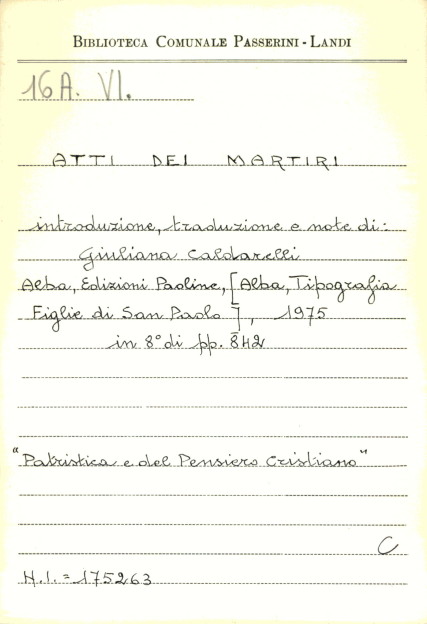 BIBLIOTECA COMUNALE PASSERINI - LANDI
16A. VI.
ATTI DEI MARTIRI
introduzione, traduzione e note di:
Giuliana Caldarelli
Alba, Edizioni Paoline, [Alba, Tipografia
Figlie di San Paolo], 1975
in 8° di pp. 842
"Patristica e del Pensiero Cristiano"
C
N.I. = 175263